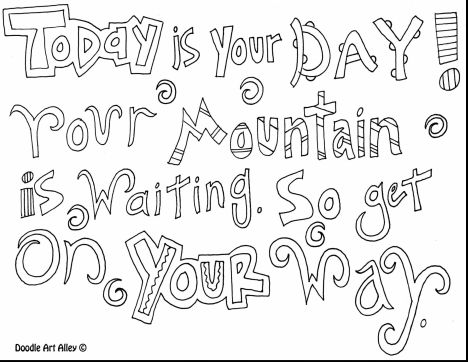 Today is Your DAY!
Your Mountain
is Waiting. So get
on YOUR Way.
Doodle Art Alley ©